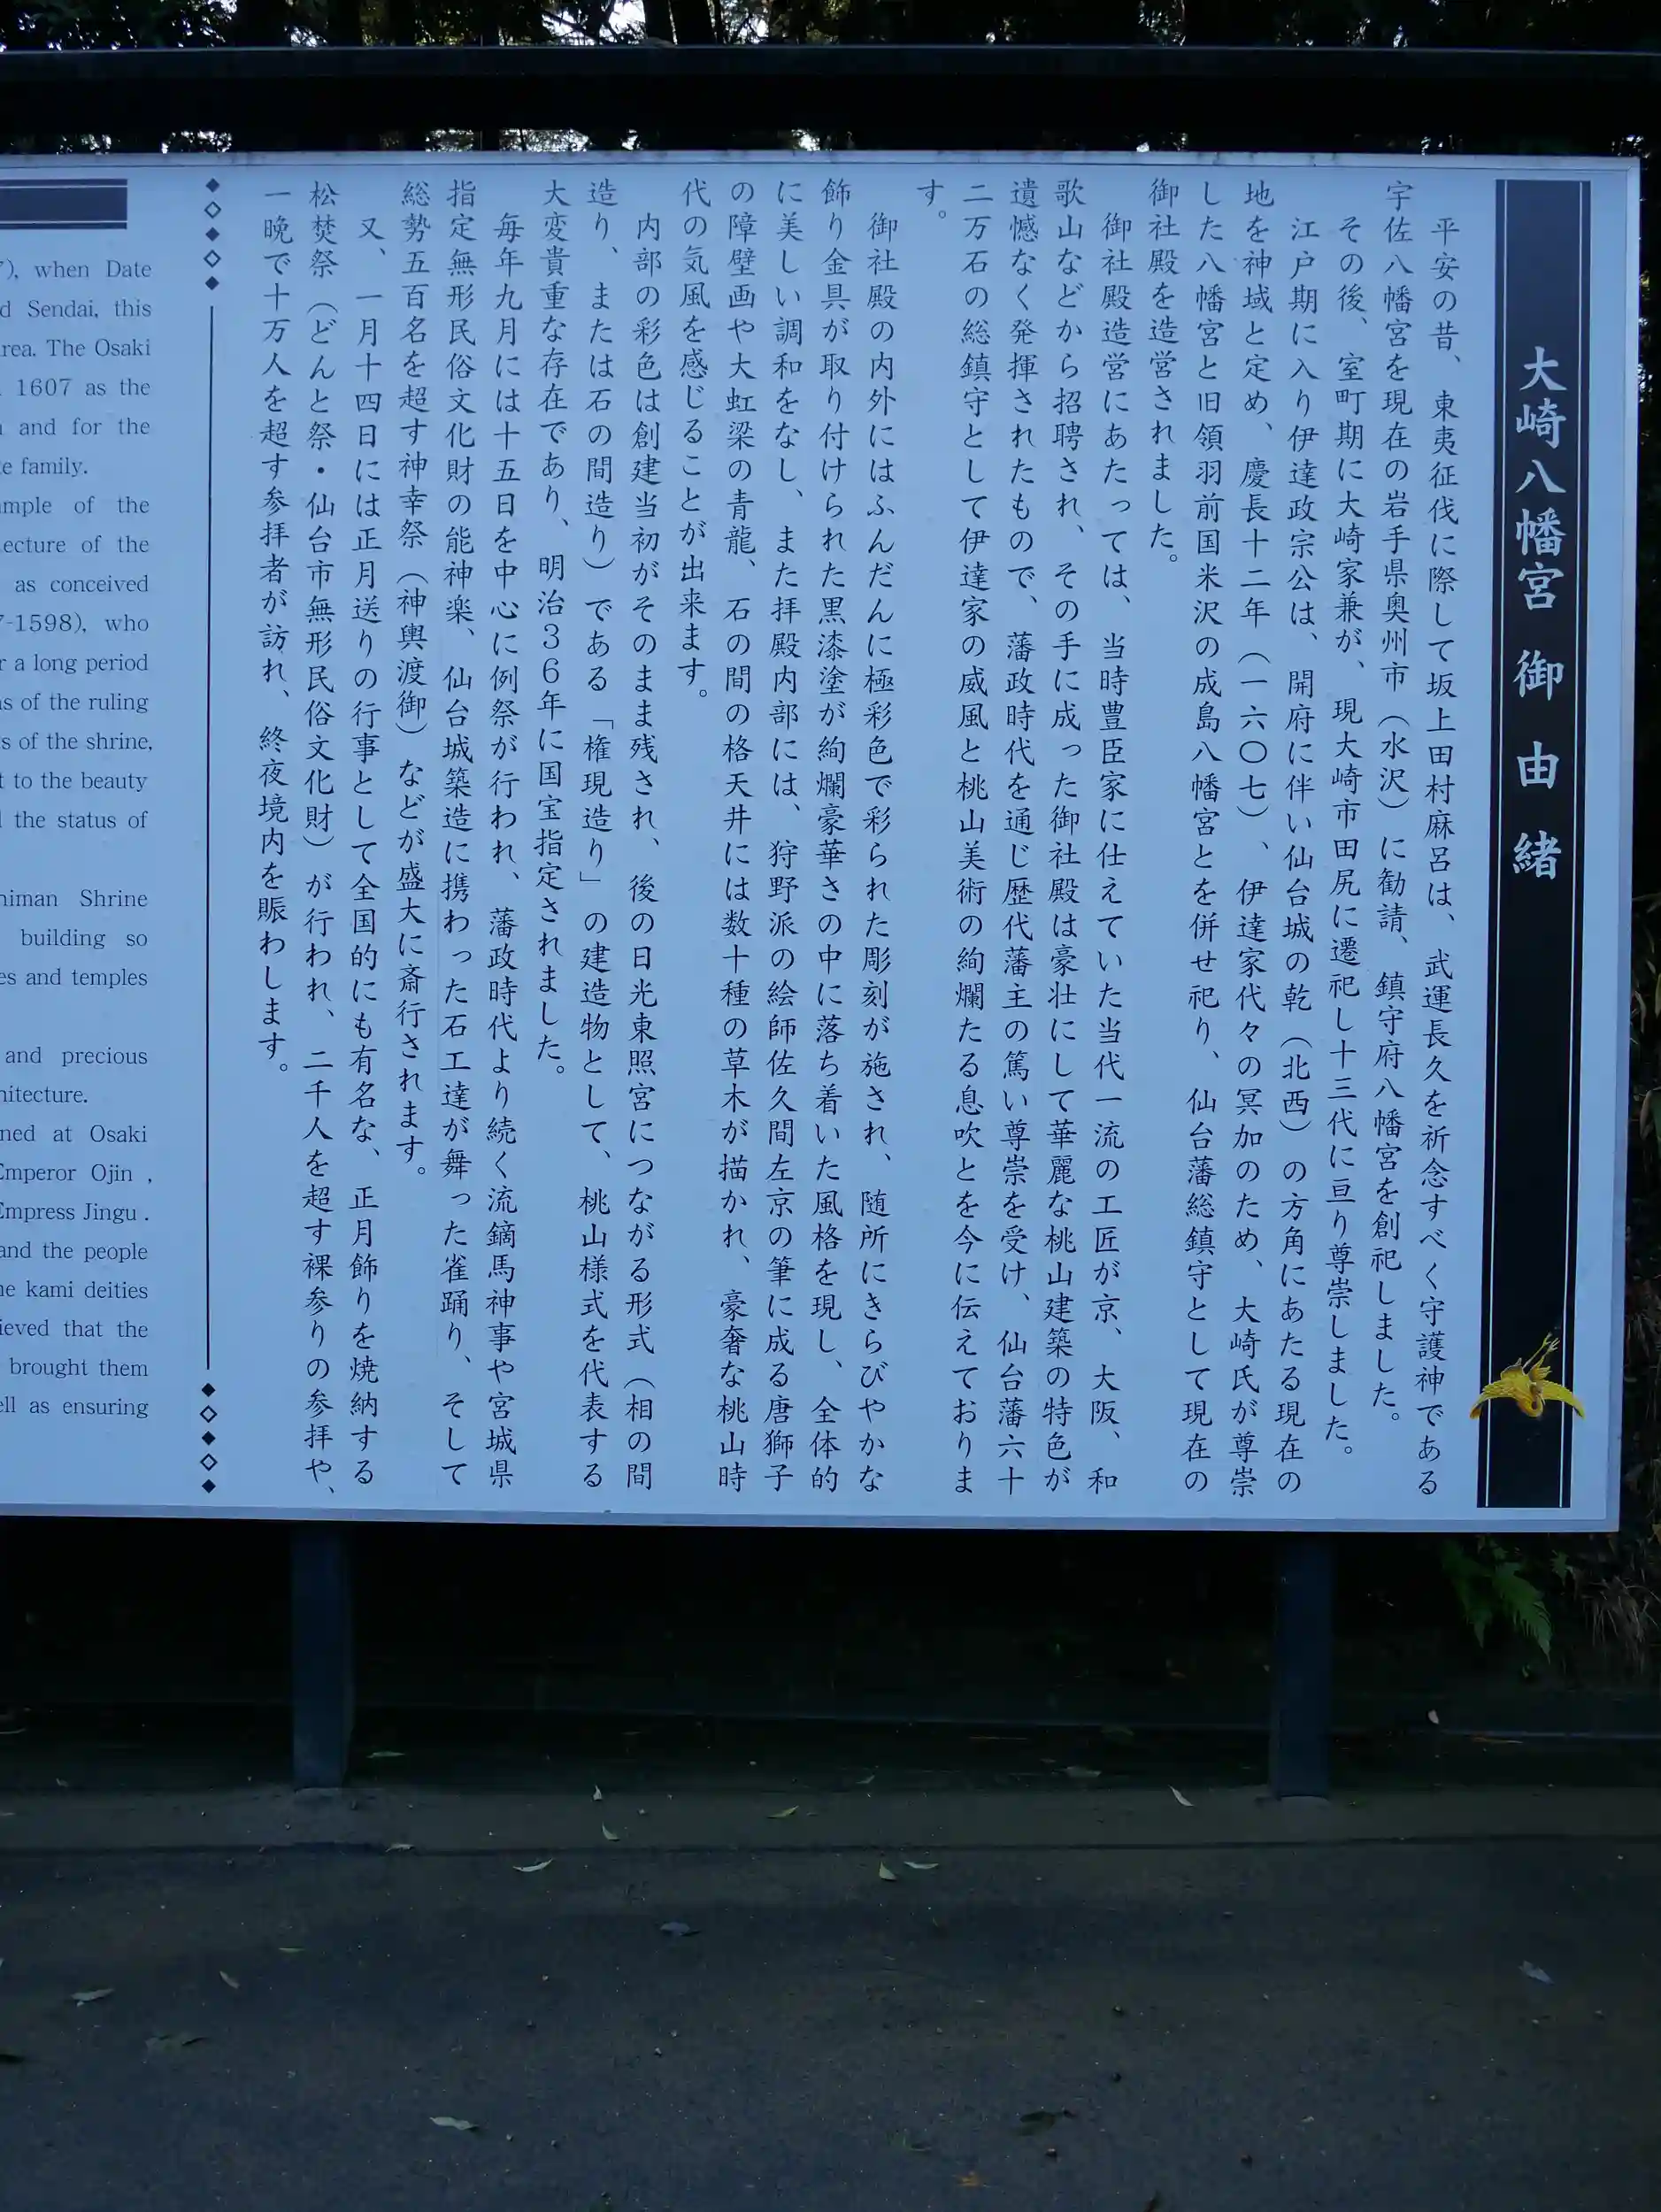 大崎八幡宮 御由緒
平安の昔、東夷征伐に際して坂上田村麻呂は、武運長久を祈念すべく守護神である
宇佐八幡宮を現在の岩手県奥州市（水沢）に勧請、鎮守府八幡宮を創祀しました。
その後、室町期に大崎家兼が、現大崎市田尻に遷祀し十三代に亘り尊崇しました。
江戸期に入り伊達政宗公は、開府に伴い仙台城の乾（北西）の方角にあたる現在の
地を神域と定め、慶長十二年（一六〇七）、伊達家代々の冥加のため、大崎氏が尊崇
した八幡宮と旧領羽前国米沢の成島八幡宮とを併せ祀り、仙台藩総鎮守として現在の
御社殿を造営されました。
御社殿造営にあたっては、当時豊臣家に仕えていた当代一流の工匠が京、大阪、和
歌山などから招聘され、その手に成った御社殿は豪壮にして華麗な桃山建築の特色が
遺憾なく発揮されたもので、藩政時代を通じ歴代藩主の篤い尊崇を受け、仙台藩六十
二万石の総鎮守として伊達家の威風と桃山美術の絢爛たる息吹とを今に伝えておりま
す。
御社殿の内外にはふんだんに極彩色で彩られた彫刻が施され、随所にきらびやかな
飾り金具が取り付けられた黒漆塗が絢爛豪華さの中に落ち着いた風格を現し、全体的
に美しい調和をなし、また拝殿内部には、狩野派の絵師佐久間左京の筆に成る唐獅子
の障壁画や大虹梁の青龍、石の間の格天井には数十種の草木が描かれ、豪奢な桃山時
代の気風を感じることが出来ます。
内部の彩色は創建当初がそのまま残され、後の日光東照宮につながる形式（相の間
造り、または石の間造り）である「権現造り」の建造物として、桃山様式を代表する
大変貴重な存在であり、明治36年に国宝指定されました。
毎年九月には十五日を中心に例祭が行われ、藩政時代より続く流鏑馬神事や宮城県
指定無形民俗文化財の能神楽、仙台城築造に携わった石工達が舞った雀踊り、そして
総勢五百名を超す神幸祭（神輿渡御）などが盛大に斎行されます。
又、一月十四日には正月送りの行事として全国的にも有名な、正月飾りを焼納する
松焚祭（どんと祭・仙台市無形民俗文化財）が行われ、二千人を超す裸参りの参拝や、
一晩で十万人を超す参拝者が訪れ、終夜境内を賑わします。
7), when Date
d Sendai, this
rea. The Osaki
1607 as the
and for the
e family.
mple of the
ecture of the
as conceived
7-1598), who
r a long period
s of the ruling
s of the shrine,
t to the beauty
the status of
himan Shrine
building so
es and temples
and precious
hitecture.
ned at Osaki
Emperor Ojin ,
Empress Jingu .
and the people
he kami deities
ieved that the
brought them
ell as ensuring